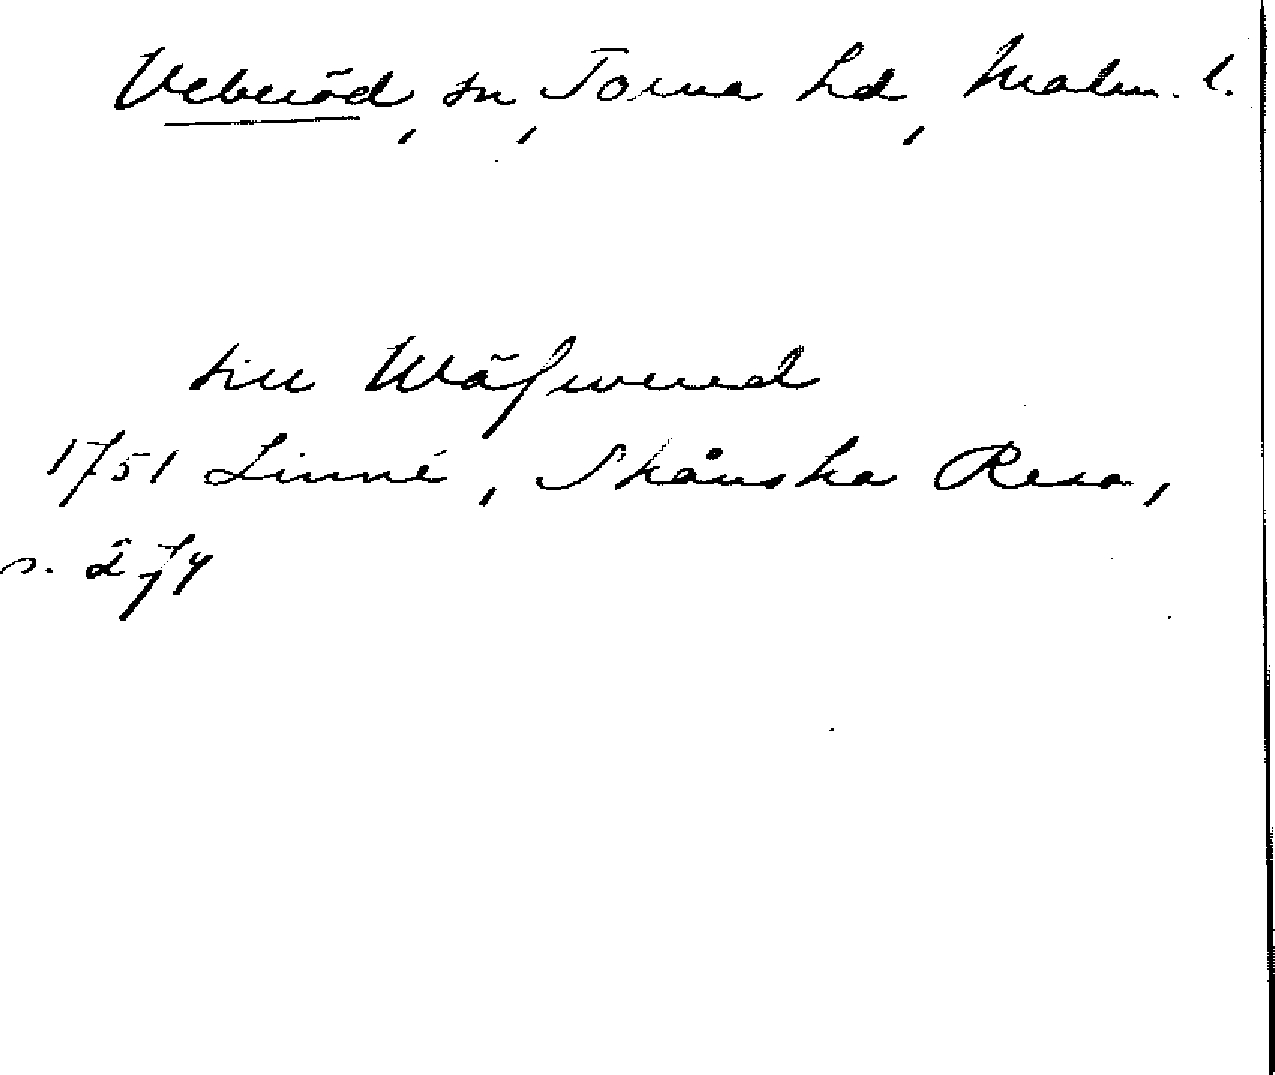 Veberöd, sn, Torna hd, Malm. l.
till Wäfwered
1751 Linné, Skånska Resa,
s. 274